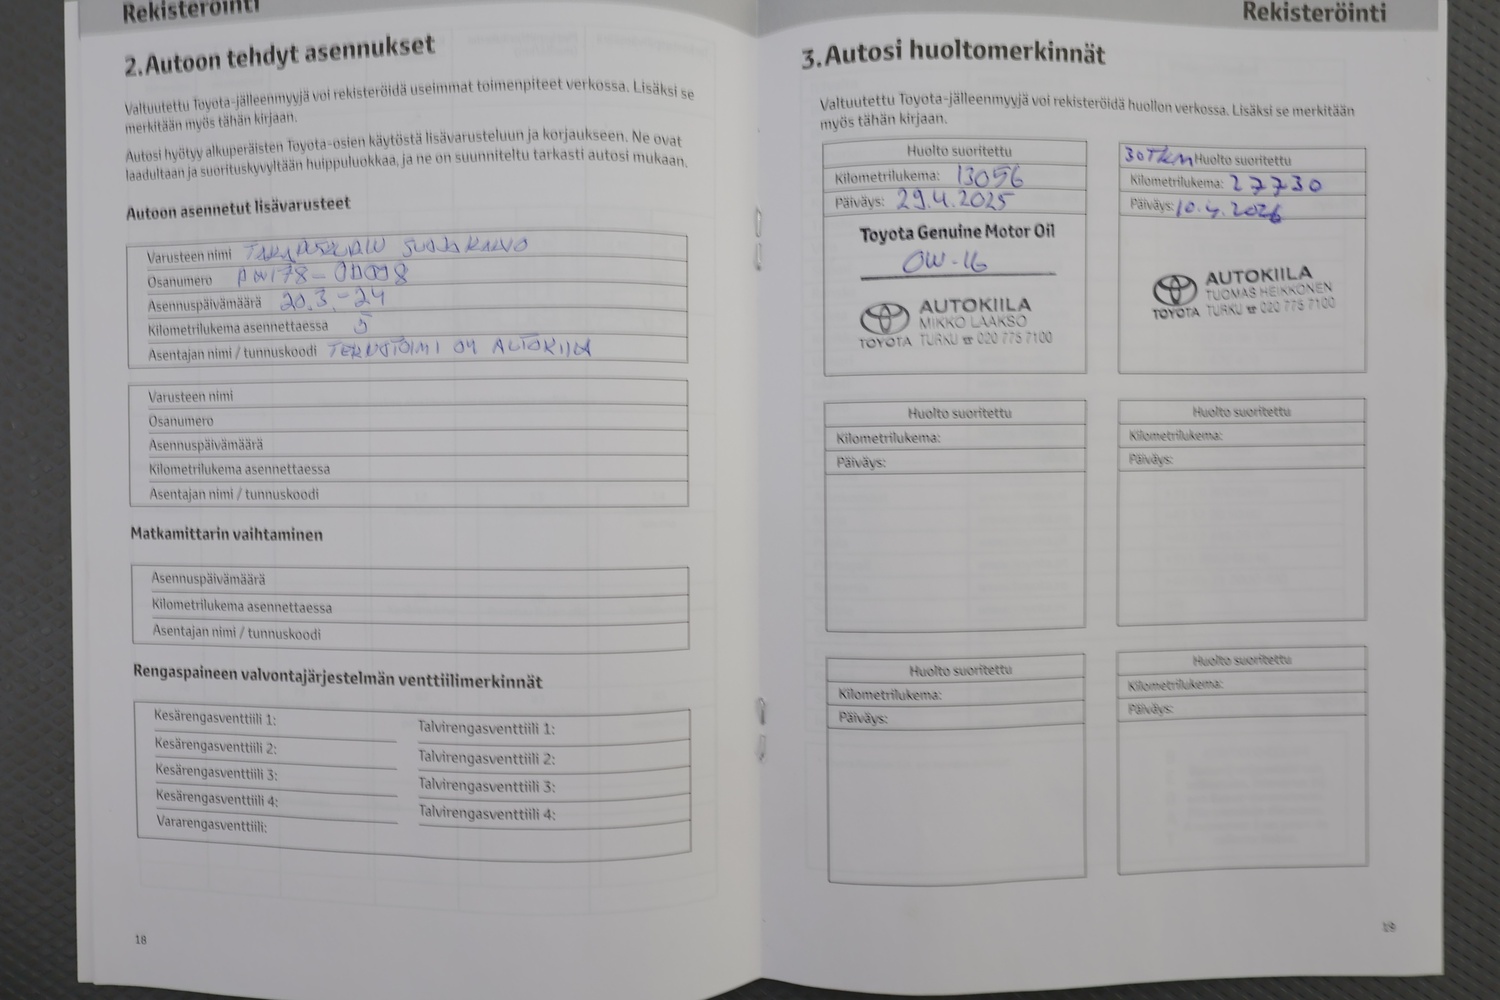 Rekisteröinti
2. Autoon tehdyt asennukset
Valtuutettu Toyota-jälleenmyyjä voi rekisteröidä useimmat toimenpiteet verkossa. Lisäksi se
merkitään myös tähän kirjaan.
Autosi hyötyy alkuperäisten Toyota-osien käytöstä lisävarusteluun ja korjaukseen. Ne ovat
laadultaan ja suorituskyvyltään huippuluokkaa, ja ne on suunniteltu tarkasti autosi mukaan.
Autoon asennetut lisävarusteet
Varusteen nimi TAKAPUSKURIN SUOJAKALVO
Osanumero PW178-0D098
Asennuspäivämäärä 20.3.-24
Kilometrilukema asennettaessa 5
Asentajan nimi / tunnuskoodi OY AUTOKIILA
Varusteen nimi
Osanumero
Asennuspäivämäärä
Kilometrilukema asennettaessa
Asentajan nimi / tunnuskoodi
Matkamittarin vaihtaminen
Asennuspäivämäärä
Kilometrilukema asennettaessa
Asentajan nimi / tunnuskoodi
Rengaspaineen valvontajärjestelmän venttiilimerkinnät
Kesärengasventtiili 1: Talvirengasventtiili 1:
Kesärengasventtiili 2: Talvirengasventtiili 2:
Kesärengasventtiili 3: Talvirengasventtiili 3:
Kesärengasventtiili 4: Talvirengasventtiili 4:
Vararengasventtiili:
18
Rekisteröinti
3. Autosi huoltomerkinnät
Valtuutettu Toyota-jälleenmyyjä voi rekisteröidä huollon verkossa. Lisäksi se merkitään
myös tähän kirjaan.
Huolto suoritettu
Kilometrilukema: 13056
Päiväys: 29.4.2025
Toyota Genuine Motor Oil
0W-16
AUTOKIILA
MIKKO LAAKSO
TOYOTA TURKU ☎ 020 775 7100
30TKM Huolto suoritettu
Kilometrilukema: 27730
Päiväys: 10.4.2026
AUTOKIILA
TUOMAS HEIKKONEN
TOYOTA TURKU ☎ 020 775 7100
Huolto suoritettu
Kilometrilukema:
Päiväys:
Huolto suoritettu
Kilometrilukema:
Päiväys:
Huolto suoritettu
Kilometrilukema:
Päiväys:
Huolto suoritettu
Kilometrilukema:
Päiväys:
19